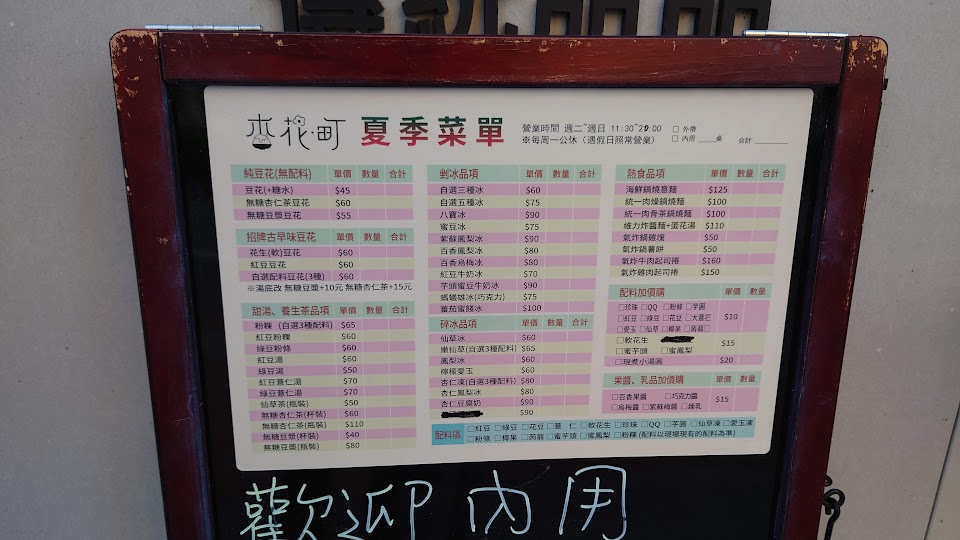 杏花町 夏季菜單
營業時間 週二~週日 11:30~20:00
※每周一公休（遇假日照常營業）
□ 外帶
□ 內用 ____桌 合計 ______
純豆花(無配料) 單價 數量 合計
豆花(+糖水) $45
無糖杏仁茶豆花 $60
無糖豆漿豆花 $55
招牌古早味豆花 單價 數量 合計
花生(軟)豆花 $60
紅豆豆花 $60
自選配料豆花(3種) $60
※湯底改 無糖豆漿+10元 無糖杏仁茶+15元
甜湯、養生茶品項 單價 數量 合計
粉粿 (自選3種配料) $65
紅豆粉粿 $60
綠豆粉條 $60
紅豆湯 $60
綠豆湯 $50
紅豆薏仁湯 $70
綠豆薏仁湯 $70
仙草茶(瓶裝) $50
無糖杏仁茶(杯裝) $60
無糖杏仁茶(瓶裝) $110
無糖豆漿(杯裝) $40
無糖豆漿(瓶裝) $80
剉冰品項 單價 數量 合計
自選三種冰 $60
自選五種冰 $75
八寶冰 $90
蜜豆冰 $75
紫蘇鳳梨冰 $90
百香鳳梨冰 $80
百香烏梅冰 $80
紅豆牛奶冰 $70
芋頭蜜豆牛奶冰 $90
螞蟻雄冰(巧克力) $75
番茄蜜餞冰 $100
碎冰品項 單價 數量 合計
仙草冰 $60
嫩仙草(自選3種配料) $65
鳳梨冰 $60
檸檬愛玉 $60
杏仁凍(自選3種配料) $80
杏仁鳳梨冰 $80
杏仁豆腐奶 $90
$90
熟食品項 單價 數量 合計
海鮮鍋燒意麵 $125
統一肉燥鍋燒麵 $100
統一肉骨茶鍋燒麵 $100
維力炸醬麵+蛋花湯 $110
氣炸鍋雞塊 $50
氣炸鍋薯餅 $50
氣炸牛肉起司捲 $160
氣炸雞肉起司捲 $150
配料加價購 單價 數量
□珍珠 □QQ □粉條 □芋圓
□紅豆 □綠豆 □花豆 □大薏仁 $10
□愛玉 □仙草 □椰果 □蒟蒻
□軟花生
□蜜芋頭 □蜜鳳梨 $15
□現煮小湯圓 $20
果醬、乳品加價購 單價 數量
□百香果醬 □巧克力醬
□烏梅醬 □紫蘇梅醬 □煉乳 $15
配料區 □紅豆 □綠豆 □花豆 □薏仁 □軟花生 □珍珠 □QQ □芋圓 □仙草凍 □愛玉凍
□粉條 □椰果 □蒟蒻 □蜜芋頭 □蜜鳳梨 □粉粿 (配料以現場現有的配料為準)
歡迎內用